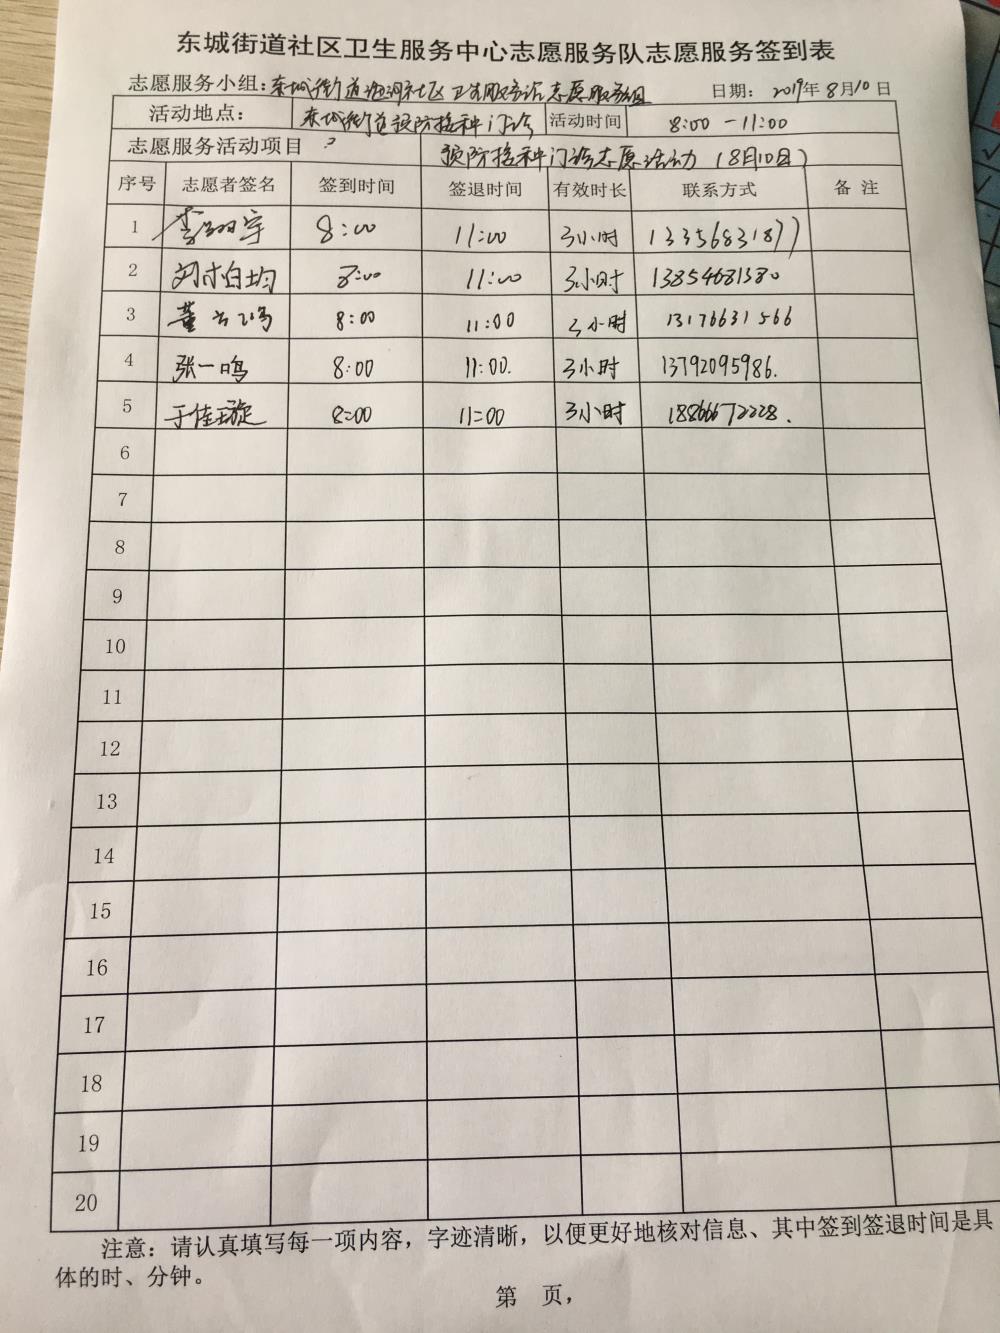 东城街道社区卫生服务中心志愿服务队志愿服务签到表
志愿服务小组:东城街道 社区卫生服务站志愿服务组 日期: 2019年8月10日
活动地点: 东城街道预防接种门诊 活动时间 8:00-11:00
志愿服务活动项目 预防接种门诊志愿活动(8月10日)
序号 志愿者签名 签到时间 签退时间 有效时长 联系方式 备注
1 李 宇 8:00 11:00 3小时 13356831877
2 刘 均 8:00 11:00 3小时 13854681380
3 董 鸣 8:00 11:00 3小时 13176631566
4 张一鸣 8:00 11:00. 3小时 13792095986.
5 于佳璇 8:00 11:00 3小时 18866672228.
6
7
8
9
10
11
12
13
14
15
16
17
18
19
20
注意:请认真填写每一项内容,字迹清晰,以便更好地核对信息、其中签到签退时间是具
体的时、分钟。
第 页,